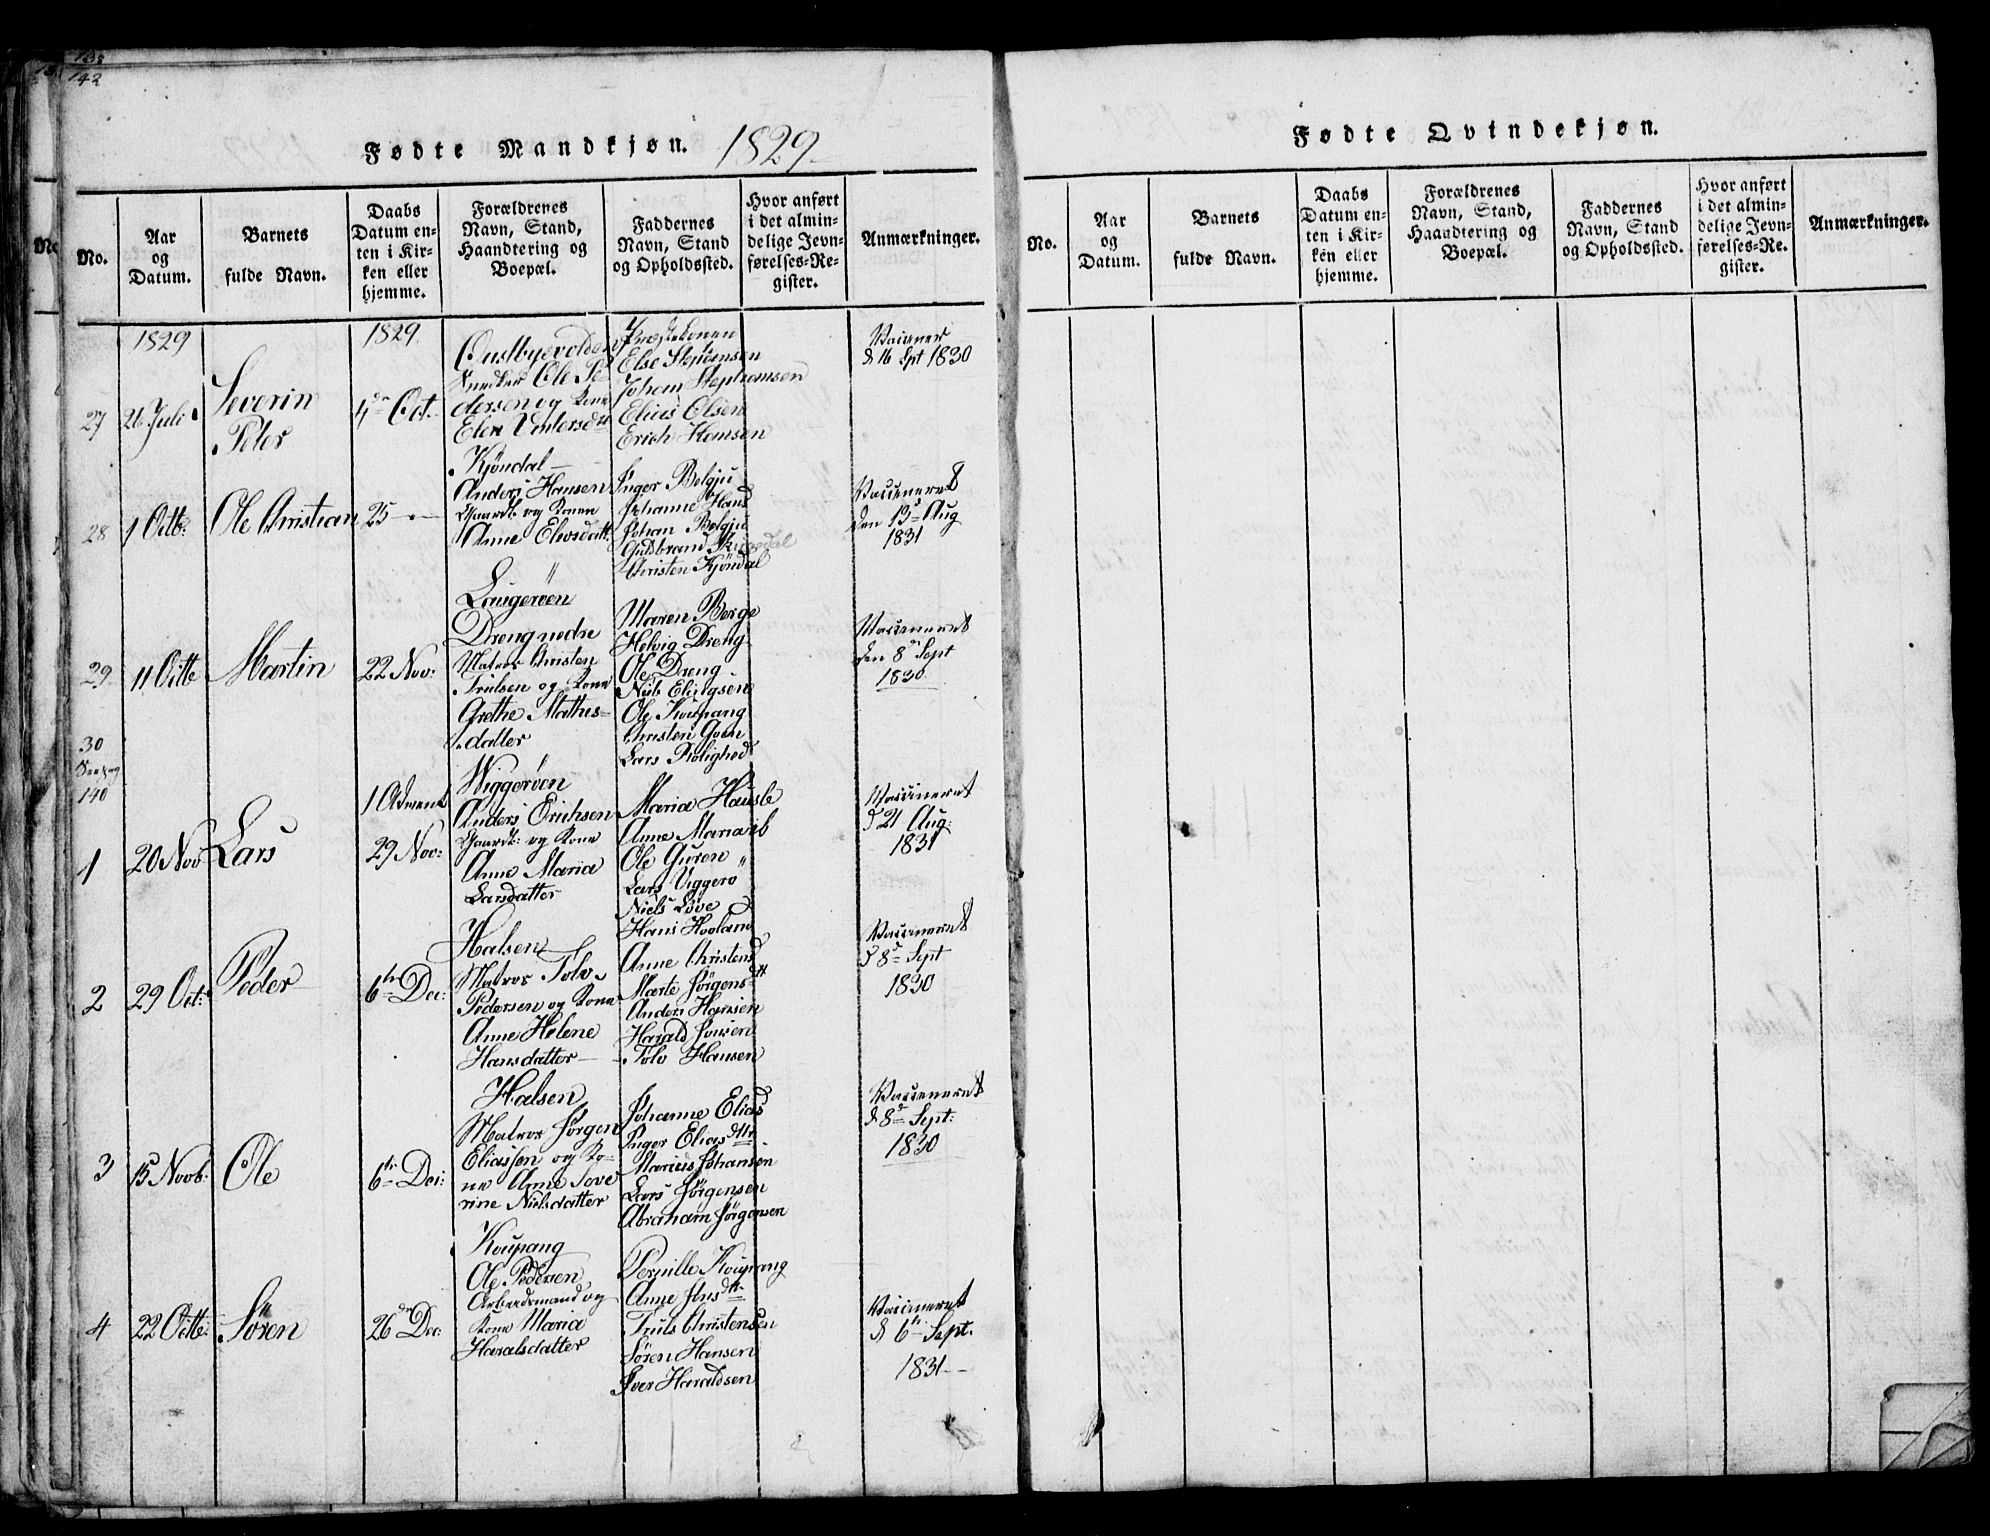 138
142
Fødte Mandkjøn. 1829
No.
Aar
og
Datum.
Barnets
fulde Navn.
Daabs
Datum en-
ten i Kir-
ken eller
hjemme.
Forældrenes
Navn, Stand,
Haandtering og
Boepæl.
Faddernes
Navn, Stand
og Opholdssted.
Hvor anført
i det almin-
delige Jevn-
førelses-Re-
gister.
Anmærkninger.
27
1829
26 Juli
Severin
Peter
1829
4de Oct.
Snedker Ole Pe-
dersen og Kone
Elen
Else Stephensen
Johan Stephansen
Elias Olsen
Erich Hansen
d 16 Spt 1830
28
1 Octb:
Ole Christian
25 -
Kjøndal
Anders Hansen
Gaardb: og Konen
Anne Elevsdatt:
Inger Belgju
Johanne Hans
Johan Belgju
Guldbrand
Christen Kjøndal
Vacineret
den 13de Aug
1831
29
11 Octb
Martin
22 Nov:
Laugerøen
Dreng nedre
Matros Christen
Trulsen og Kone
Grethe Mathis-
datter
Maren Berge
Helvig Dreng
Ole Dreng
Niels Elingsen
Ole Koupang
Christen Goen
Lars Rolighed
Vacineret
den 8de Sept
1830
30
140
1
20 Nov
Lars
1 Advent
29 Nov:
Wiggerøen
Anders Erichsen
Gaardb: og Kone
Anne Maria
Larsdatter
Maria Hausle
Anne Maria ib
Ole Guren
Lars Viggerø
Niels Löve
Hans Hovland
Vaccineret
d 21 Aug:
1831
2
29 Oct:
Peder
6te Dec:
Halsen
Matros Tolv
Pedersen og Kone
Anne Helene
Hansdatter
Anne Christens
Marte Jørgensdtt
Anders Hansen
Harald Jonsen
Tolv Hansen
Vaccineret
d 8de Sept
1830
3
15 Novb:
Ole
6te Dec:
Halsen
Matros Jørgen
Eliassen og Ko-
ne Anne Seve
rine Nielsdatter
Johanne Elias
Inger Eliasdtr
Marius Johansen
Lars Jørgensen
Abraham Jørgensen
Vacineret
d 8de Sept:
1830
4
22 Octb:
Søren
26de Dec:
Koupang
Ole Pedersen
Arbeidsmand og
Kone Maria
Haralsdatter
Pernille Koupang
Anne Jensdtt
Truls Christensen
Søren Hansen
Iver Haraldsen
Vacineret
d 6te Sept.
1831
Fødte Qvindekjøn.
No.
Aar
og
Datum.
Barnets
fulde Navn.
Daabs
Datum en-
ten i Kir-
ken eller
hjemme.
Forældrenes
Navn, Stand,
Haandtering og
Boepæl.
Faddernes
Navn, Stand
og Opholdssted.
Hvor anført
i det almin-
delige Jevn-
førelses-Re-
gister.
Anmærkninger.